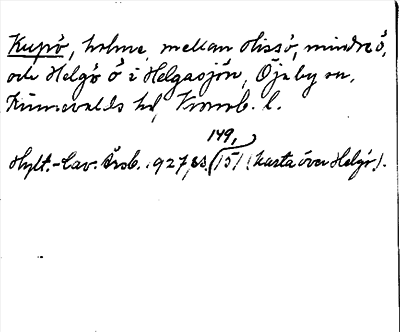 Kupö, holme, mellan Hissö, mindre ö,
och Helgö ö i Helgasjön, Öjaby sn,
Kinnevalds hd, Kronob. l.
149,
Hylt.-Cav. Årsb. 1927, ss. 151 (karta över Helgö).